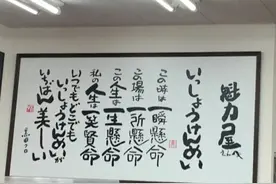 魁力屋さんへ
いっしょうけんめい
この時は一瞬懸命
この場は一所懸命
この生は一生懸命
私の人生は一笑賢命
いつでもどこでも
いっしょうけんめいが
いちばん美しい